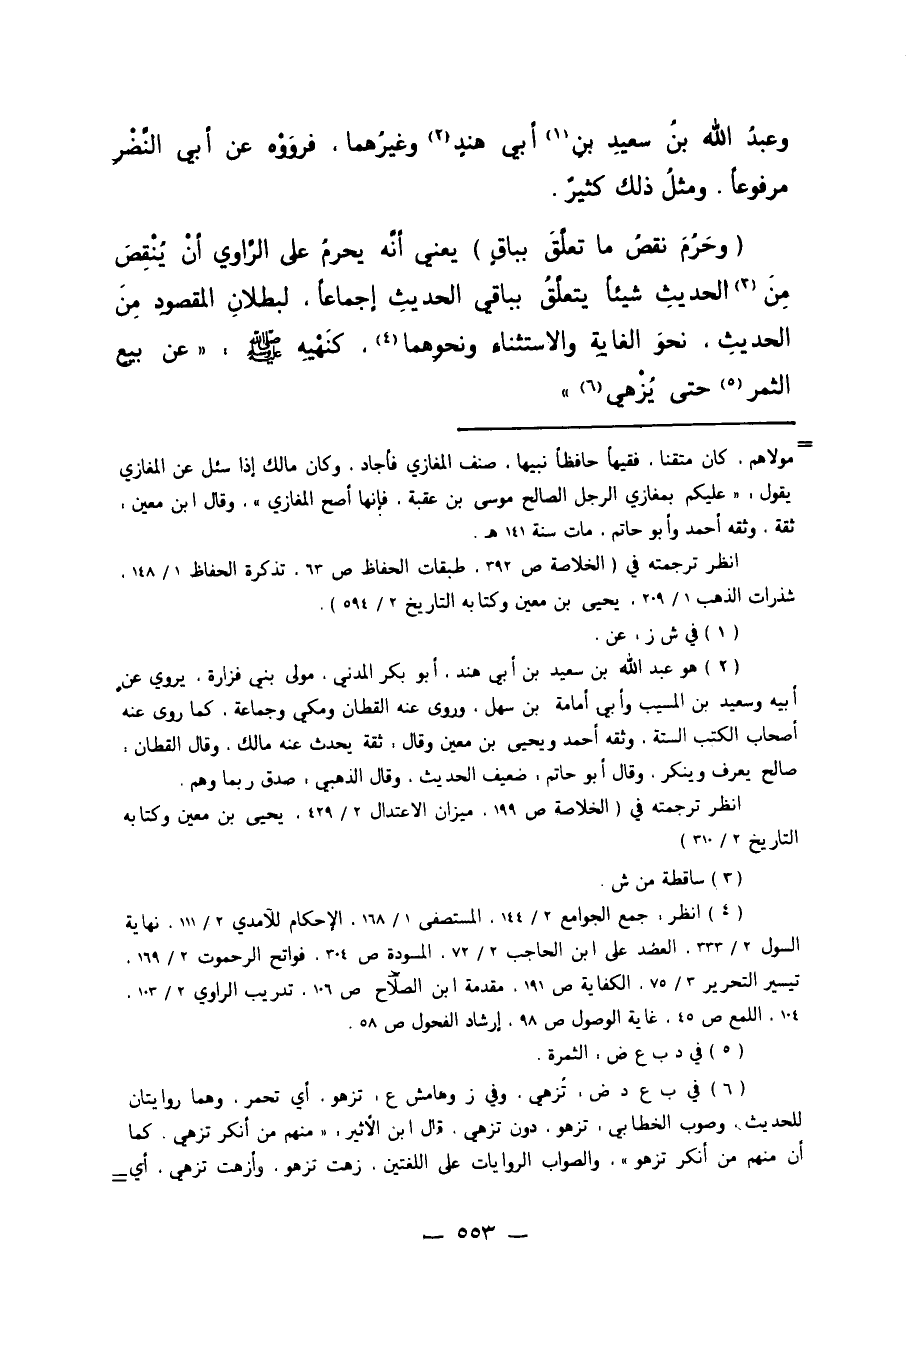 وعبدُ الله بنُ سعيدِ بنِ (١) أبي هندٍ (٢) وغيرُهما ، فروَوْه عن أبي النَّضْر
مرفوعاً . ومثلُ ذلك كثيرٌ .
( وحَرُمَ نقصُ ما تعلَّقَ بباقٍ ) يعني أنَّه يحرمُ على الرَّاوي أنْ يُنْقِصَ
مِنَ (٣) الحديثِ شيئاً يتعلَّقُ بباقي الحديثِ إجماعاً ، لبطلانِ المقصودِ مِنَ
الحديثِ ، نحوَ الغايةِ والاستثناء ونحوهما (٤) ، كنَهْيِه ﷺ : « عن بيع
الثمر (٥) حتى يُزْهي (٦) »
= مولاهم ، كان متقنا ، فقيهاً حافظاً نبيها ، صنف المغازي فأجاد ، وكان مالك إذا سئل عن المغازي
يقول : « عليكم بمغازي الرجل الصالح موسى بن عقبة ، فإنها أصح المغازي » ، وقال ابن معين :
ثقة ، وثقه أحمد وأبو حاتم ، مات سنة ١٤١ هـ .
انظر ترجمته في ( الخلاصة ص ٣٩٢ ، طبقات الحفاظ ص ٦٣ ، تذكرة الحفاظ ١ / ١٤٨ ،
شذرات الذهب ١ / ٢٠٩ ، يحيى بن معين وكتابه التاريخ ٢ / ٥٩٤ ) .
( ١ ) في ش ز : عن .
( ٢ ) هو عبد الله بن سعيد بن أبي هند ، أبو بكر المدني ، مولى بني فزارة ، يروي عن
أبيه وسعيد بن المسيب وأبي أمامة بن سهل ، وروى عنه القطان ومكي وجماعة ، كما روى عنه
أصحاب الكتب الستة ، وثقه أحمد ويحيى بن معين وقال : ثقة يحدث عنه مالك ، وقال القطان :
صالح يعرف وينكر ، وقال أبو حاتم : ضعيف الحديث ، وقال الذهبي : صدق ربما وهم .
انظر ترجمته في ( الخلاصة ص ١٩٩ ، ميزان الاعتدال ٢ / ٤٢٩ ، يحيى بن معين وكتابه
التاريخ ٢ / ٣١٠ )
( ٣ ) ساقطة من ش .
( ٤ ) انظر : جمع الجوامع ٢ / ١٤٤ ، المستصفى ١ / ١٦٨ ، الإحكام للآمدي ٢ / ١١١ ، نهاية
السول ٢ / ٣٣٣ ، العضد على ابن الحاجب ٢ / ٧٢ ، المسودة ص ٣٠٤ ، فواتح الرحموت ٢ / ١٦٩ ،
تيسير التحرير ٣ / ٧٥ ، الكفاية ص ١٩١ ، مقدمة ابن الصلاح ص ١٠٦ ، تدريب الراوي ٢ / ١٠٣ ،
١٠٤ ، اللمع ص ٤٥ ، غاية الوصول ص ٩٨ ، إرشاد الفحول ص ٥٨ .
( ٥ ) في د ب ع ض : الثمرة .
( ٦ ) في ب ع د ض : تُزهي ، وفي ز وهامش ع : تزهو ، أي تحمر ، وهما روايتان
للحديث ، وصوب الخطابي : تزهو ، دون تزهي ، قال ابن الأثير : « منهم من أنكر تزهي ، كما
أن منهم من أنكر تزهو » ، والصواب الروايات على اللغتين ، زهت تزهو ، وأزهت تزهي ، أي =
— ٥٥٣ —